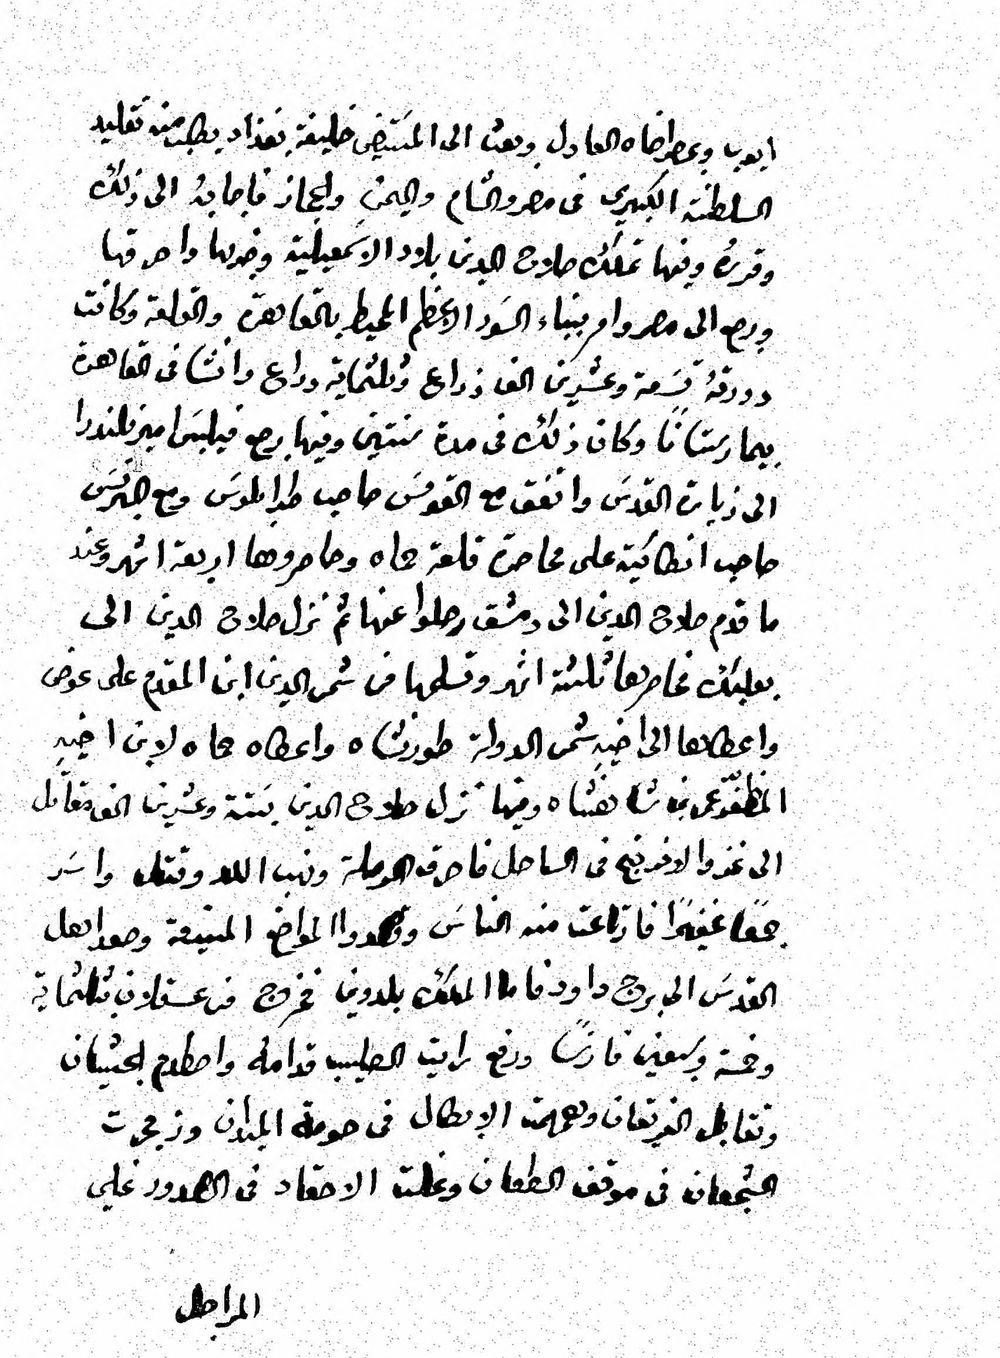 ايوب وبمصر اخاه العادل وبعث الى المستضي خليفة بغداد يطلب منه تقليد
السلطنة الكبيري في مصر والشام واليمن والحجاز فاجابهُ الى ذلك
وقررهُ وفيها تملك صلاح الدين بلاد الاسمعيلية وخربها واحرقها
ورجع الى مصر وامر ببناء السور الاعظم المحيط بالقاهرة والقلعة وكانت
دورتهُ تسعة وعشرين الف ذراع وثلثماية دراع وانشا في القاهرة
بيمارستانًا وكان ذلك في مدة سنتين وفيها رجع فيليبس امير فلندرا
الى زيارة القدس واتفق مع القومس صاحب طرابلوس ومع البرنس
صاحب انطاكية على محاصرة قلعة حماه وحاصروها اربعة اشهر وعند
ما قدم صلاح الدين الى دمشق رحلوا عنها ثم نزل صلاح الدين الى
بعلبك فحاصرها ثلثة اشهر وتسلمها من شمس الدين ابن المقدم على عوض
واعطاها الى اخيهِ شمس الدولة طورنشاه واعطاه حماه لابن اخيهِ
المظفّر عمر بن شاهنشاه وفيها نزل صلاح الدين بستة وعشرين الف مقاتل
الى غزو الافرنج في الساحل فاحرق الرملة ونهب اللد وقتل واسر
جمعًا غفيرًا فارتاعت منه الناس وقصدوا المواضع المنيعة وصعد اهل
القدس الى برج داود فاما الملك بلدوين فخرج من عسقلان بثلثماية
وخمسة وسبعين فارسًا ورفع رايت الصليب قدامهُ واصطدم الجيشان
وتقابل الفريقان وهمهمت الابطال في حومة الميدان وزمجرت
الشجعان في موقف الطعان وغلت الاحقاد في الصدور غلي
المراجل